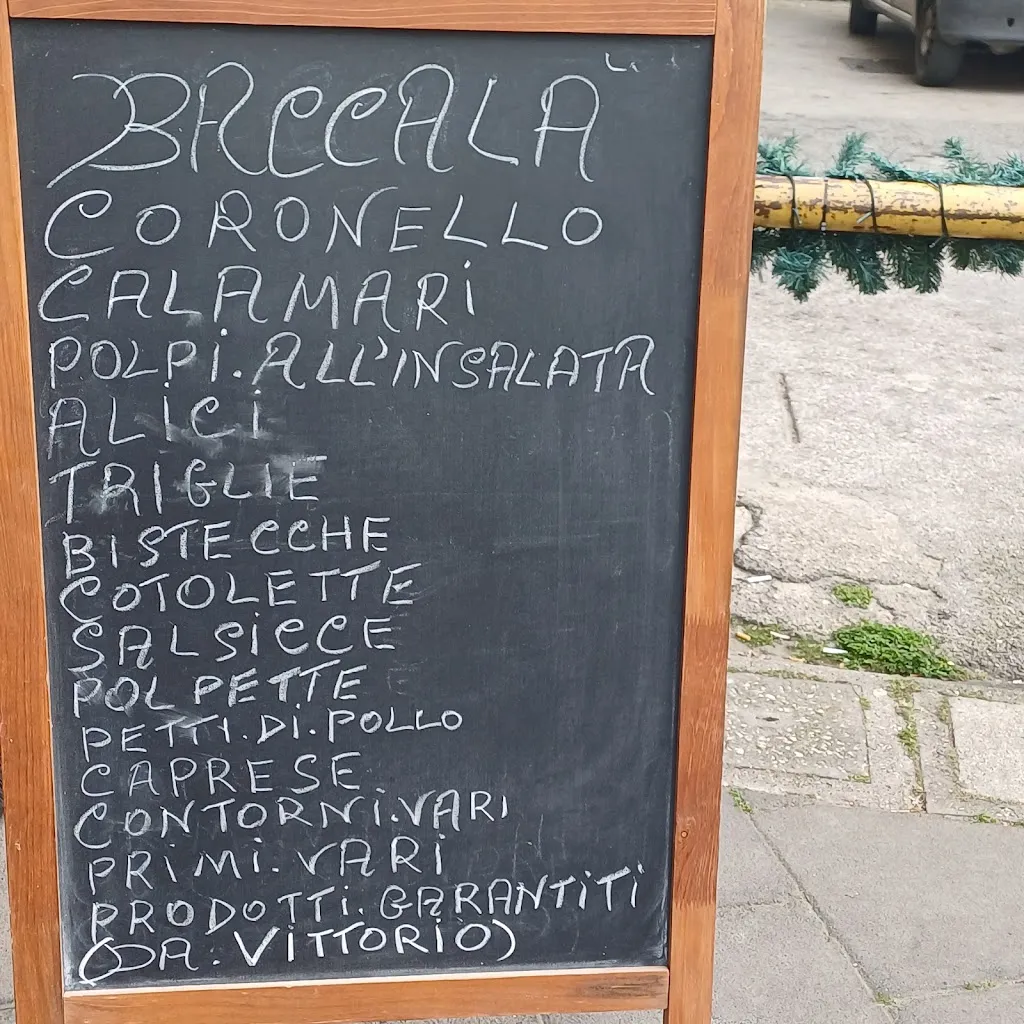 BACCALA
CORONELLO
CALAMARi
POLPi. ALL'INSALATA
ALiCi
TRIGLIE
BISTECCHE
COTOLETTE
SALSiCCE
POLPETTE
PETTI.Di.POLLO
CAPRESE
CONTORNi.VARI
PRiMi.VARi
PRODOTTi.GARANTiTi
(DA.ViTTORiO)